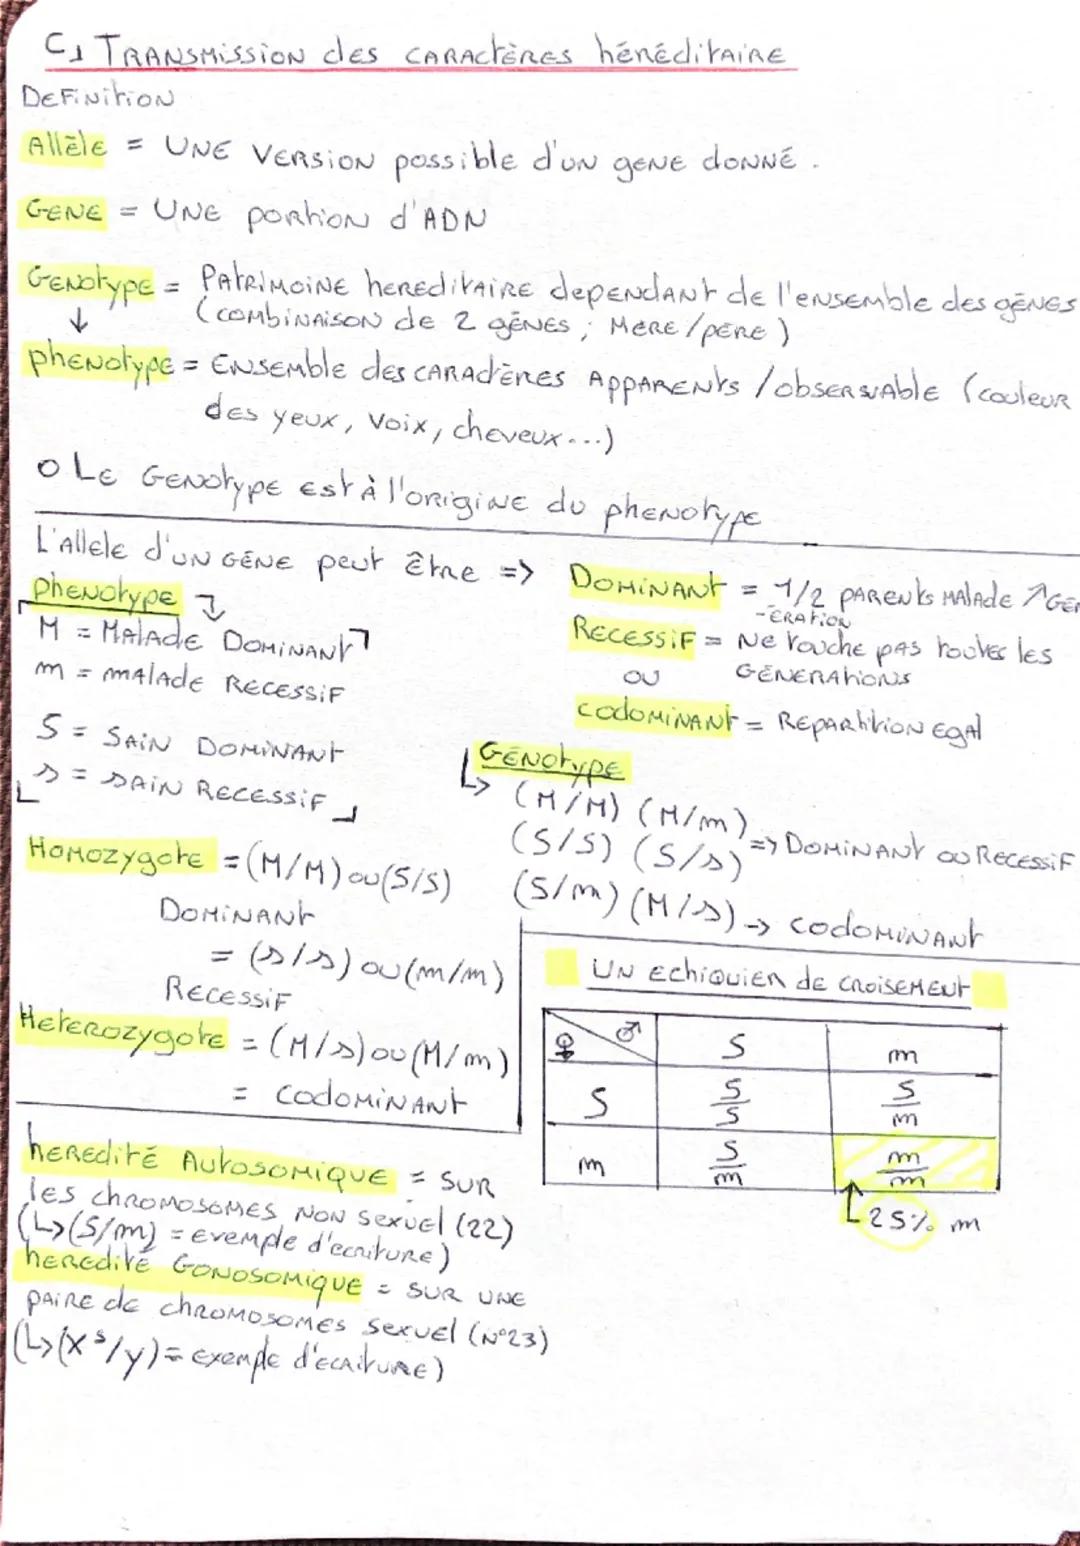 C) TRANSMISSION des CARACTÈRES hérÉditAIRE
DEFINITION
Allèle = UNE VERSION possible d'UN gENE donné.
GENE = UNE portion d'ADN
GENOtype = PATRIMOINE HEREDITAIRE dépendant de l'ensemble des gènes
↓ (combinaison de 2 gènes ; MERE/père)
phENOtype = ENSEMble des CARACTÈRES APPARENTS / observable (couleur
des yeux, voix, cheveux...)
o LE GENOtype est à l'origine du phENOtype
L'Allele d'UN GÈNE peut être => DOMINANT = 1/2 PARENts MAlAde ↗GÉN
-ERATION
phENOtype
M = MAlAde DOMINANT
m = mAlAde RECESSIF
S = SAIN DOMINANT
s = sAIN RECESSIF
RECESSIF = Ne touche pas toutes les
GÉNÉRATIONS
OU
codominant = REPARtition EgAl
GÉNOtype
↳ (M/M) (M/m)
(S/S) (S/s) => DOMINANT ou RECESSIF
(S/m) (M/s) → codOMINANT
HOMOZYgote = (M/M) ou (S/S)
DOMINANT
= (s/s) ou (m/m)
RECESSIF
HETEROZYgote = (M/s) ou (M/m)
= CodOMINANT
UN EchiQUIER de CROISEMENT
♀ ♂ S m
S S/S S/m
m S/m m/m
25% m
hEREdité AUTOSOMIQUE = SUR
les chROMOSOMES NON SEXUEl (22)
(↳(S/m) = exemple d'écriture)
hEREdité GONOSOMIQUE = SUR UNE
PAIRE de chROMOSOMES SEXUEl (N°23)
(↳(X^s/y) = exemple d'ECRITURE)